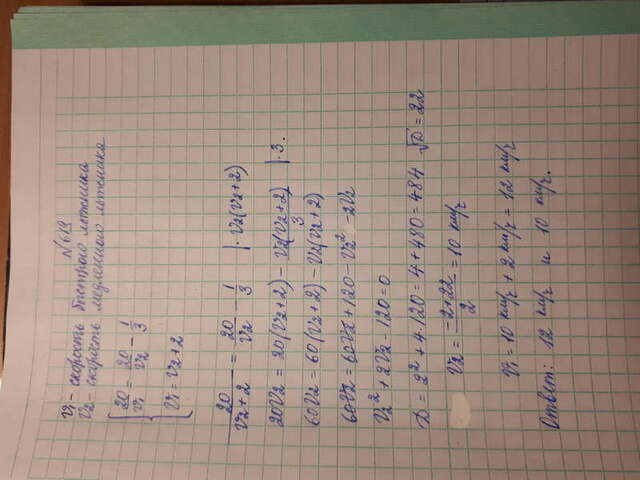 № 619
v₁ - скорость быстрого лыжника
v₂ - скорость медленного лыжника
{ 20/v₁ = 20/v₂ - 1/3
v₁ = v₂ + 2
20/(v₂+2) = 20/v₂ - 1/3 |· v₂(v₂+2)
20v₂ = 20(v₂+2) - v₂(v₂+2)/3 |· 3.
60v₂ = 60(v₂+2) - v₂(v₂+2)
60v₂ = 60v₂ + 120 - v₂² - 2v₂
v₂² + 2v₂ - 120 = 0
D = 2² + 4·120 = 4 + 480 = 484 √D = 22
v₂ = (-2+22)/2 = 10 км/ч
v₁ = 10 км/ч + 2 км/ч = 12 км/ч
Ответ: 12 км/ч и 10 км/ч.